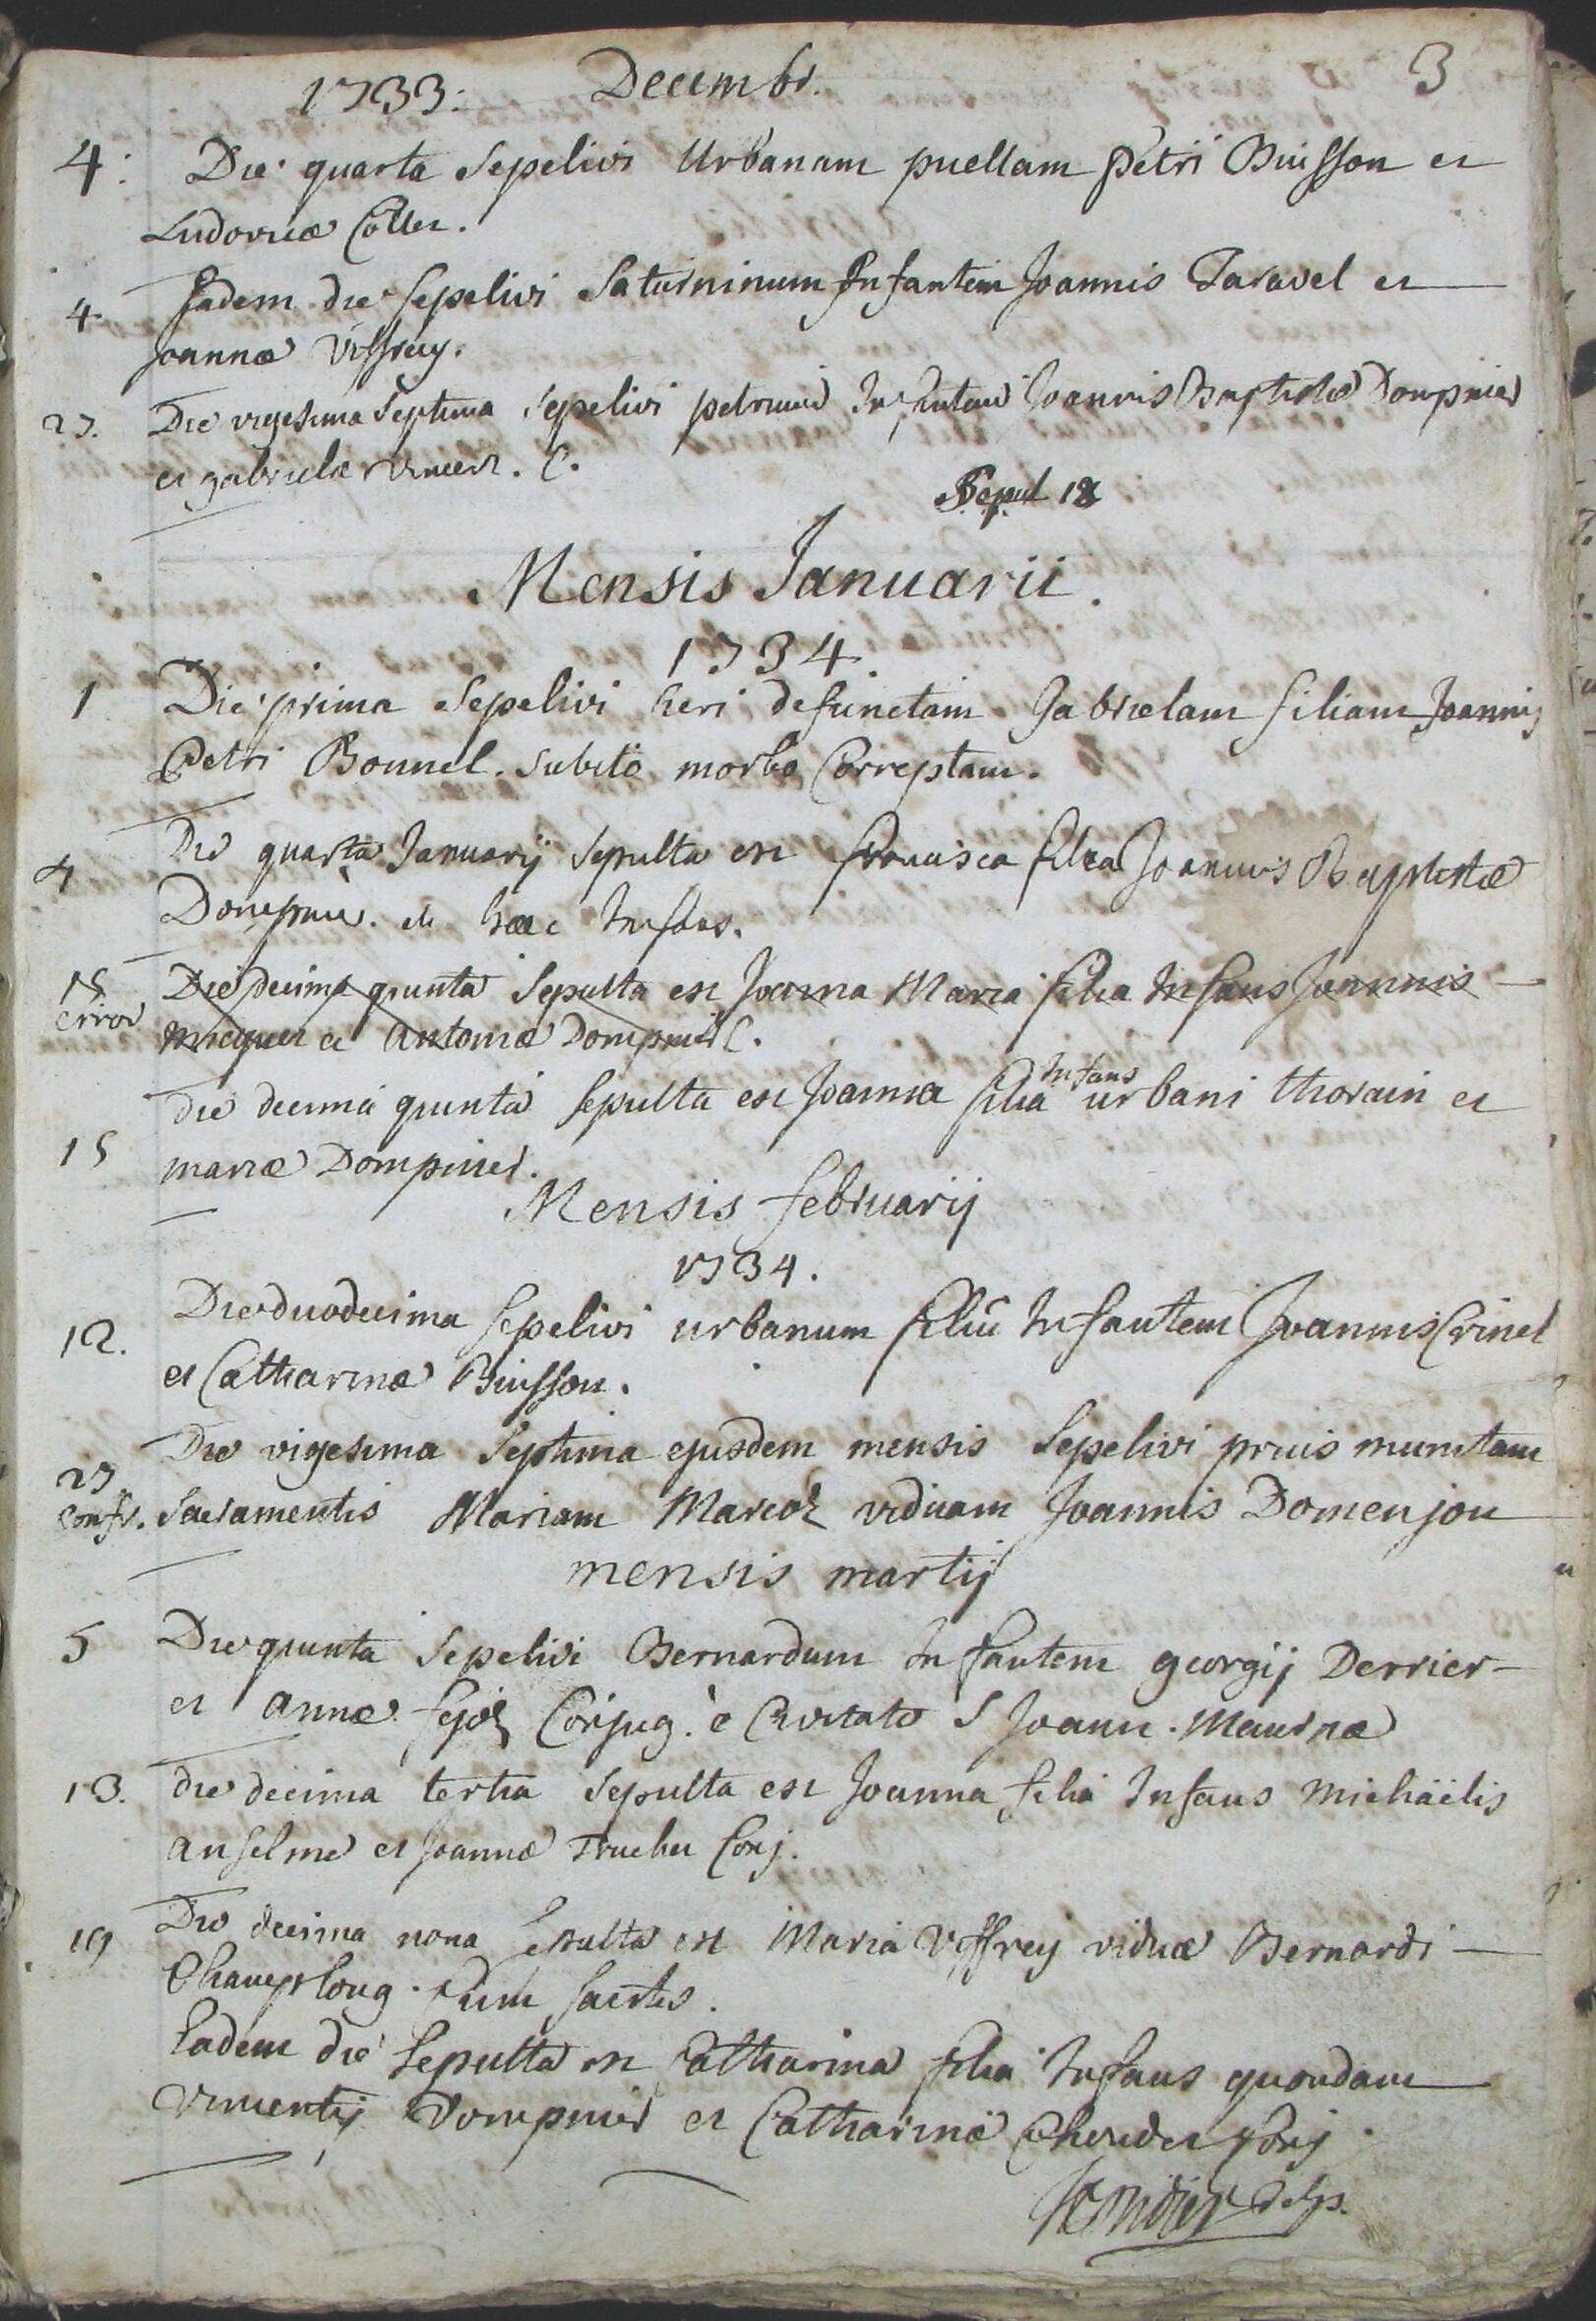 1733: Decembr. 3
4: Die quarta Sepelivi Urbanam puellam Petri Buisson et
Ludovicæ Collet.
4 Eadem die sepelivi Saturninum Infantem Joannis Taravel et
Joannæ Viffrey.
27. Die vigesima septima sepelivi petrum Infantem Joannis Baptistæ Dompnier
et gabrielæ Vincent. C.
Sepul 18
Mensis Januarii.
1734
1 Die prima Sepelivi heri defunctam Gabrielam filiam Joannis
Petri Bonnel. subito morbo Correptam.
4 Die quarta Januarij sepulta est francisca filia Joannis Baptistæ
Dompnier. et hæc Infans.
15 Die decima quinta Sepulta est Joanna Maria filia Infans Joannis
error et Antoniæ Dompnier C.
die decima quinta sepulta est Joanna filia Infans urbani thorain et
15 mariæ Dompnier.
Mensis februarij
1734.
12. Die duodecima sepelivi urbanum filiū Infantem Joannis Crinel
et Catharinæ Buisson.
27 Die vigesima Septima ejusdem mensis Sepelivi prius munitam
confr. sacramentis Mariam Marcoz viduam Joannis Domenjon
mensis martij
5 Die quinta Sepelivi Bernardum Infantem georgij Derrier
et annæ fejoz Conjug. è Civitate S Joann. Maurnæ
13. die decima tertia Sepulta est Joanna filia Infans Michäelis
anselme et Joannæ Truchet Conj.
19 Die decima nona sepulta est Maria Viffrey viduæ Bernardi
Champlong. cum sacrtis.
Eadem die Sepulta est Catharina filia Infans quondam
Vincentij Dompnier et Catharinæ Conj.